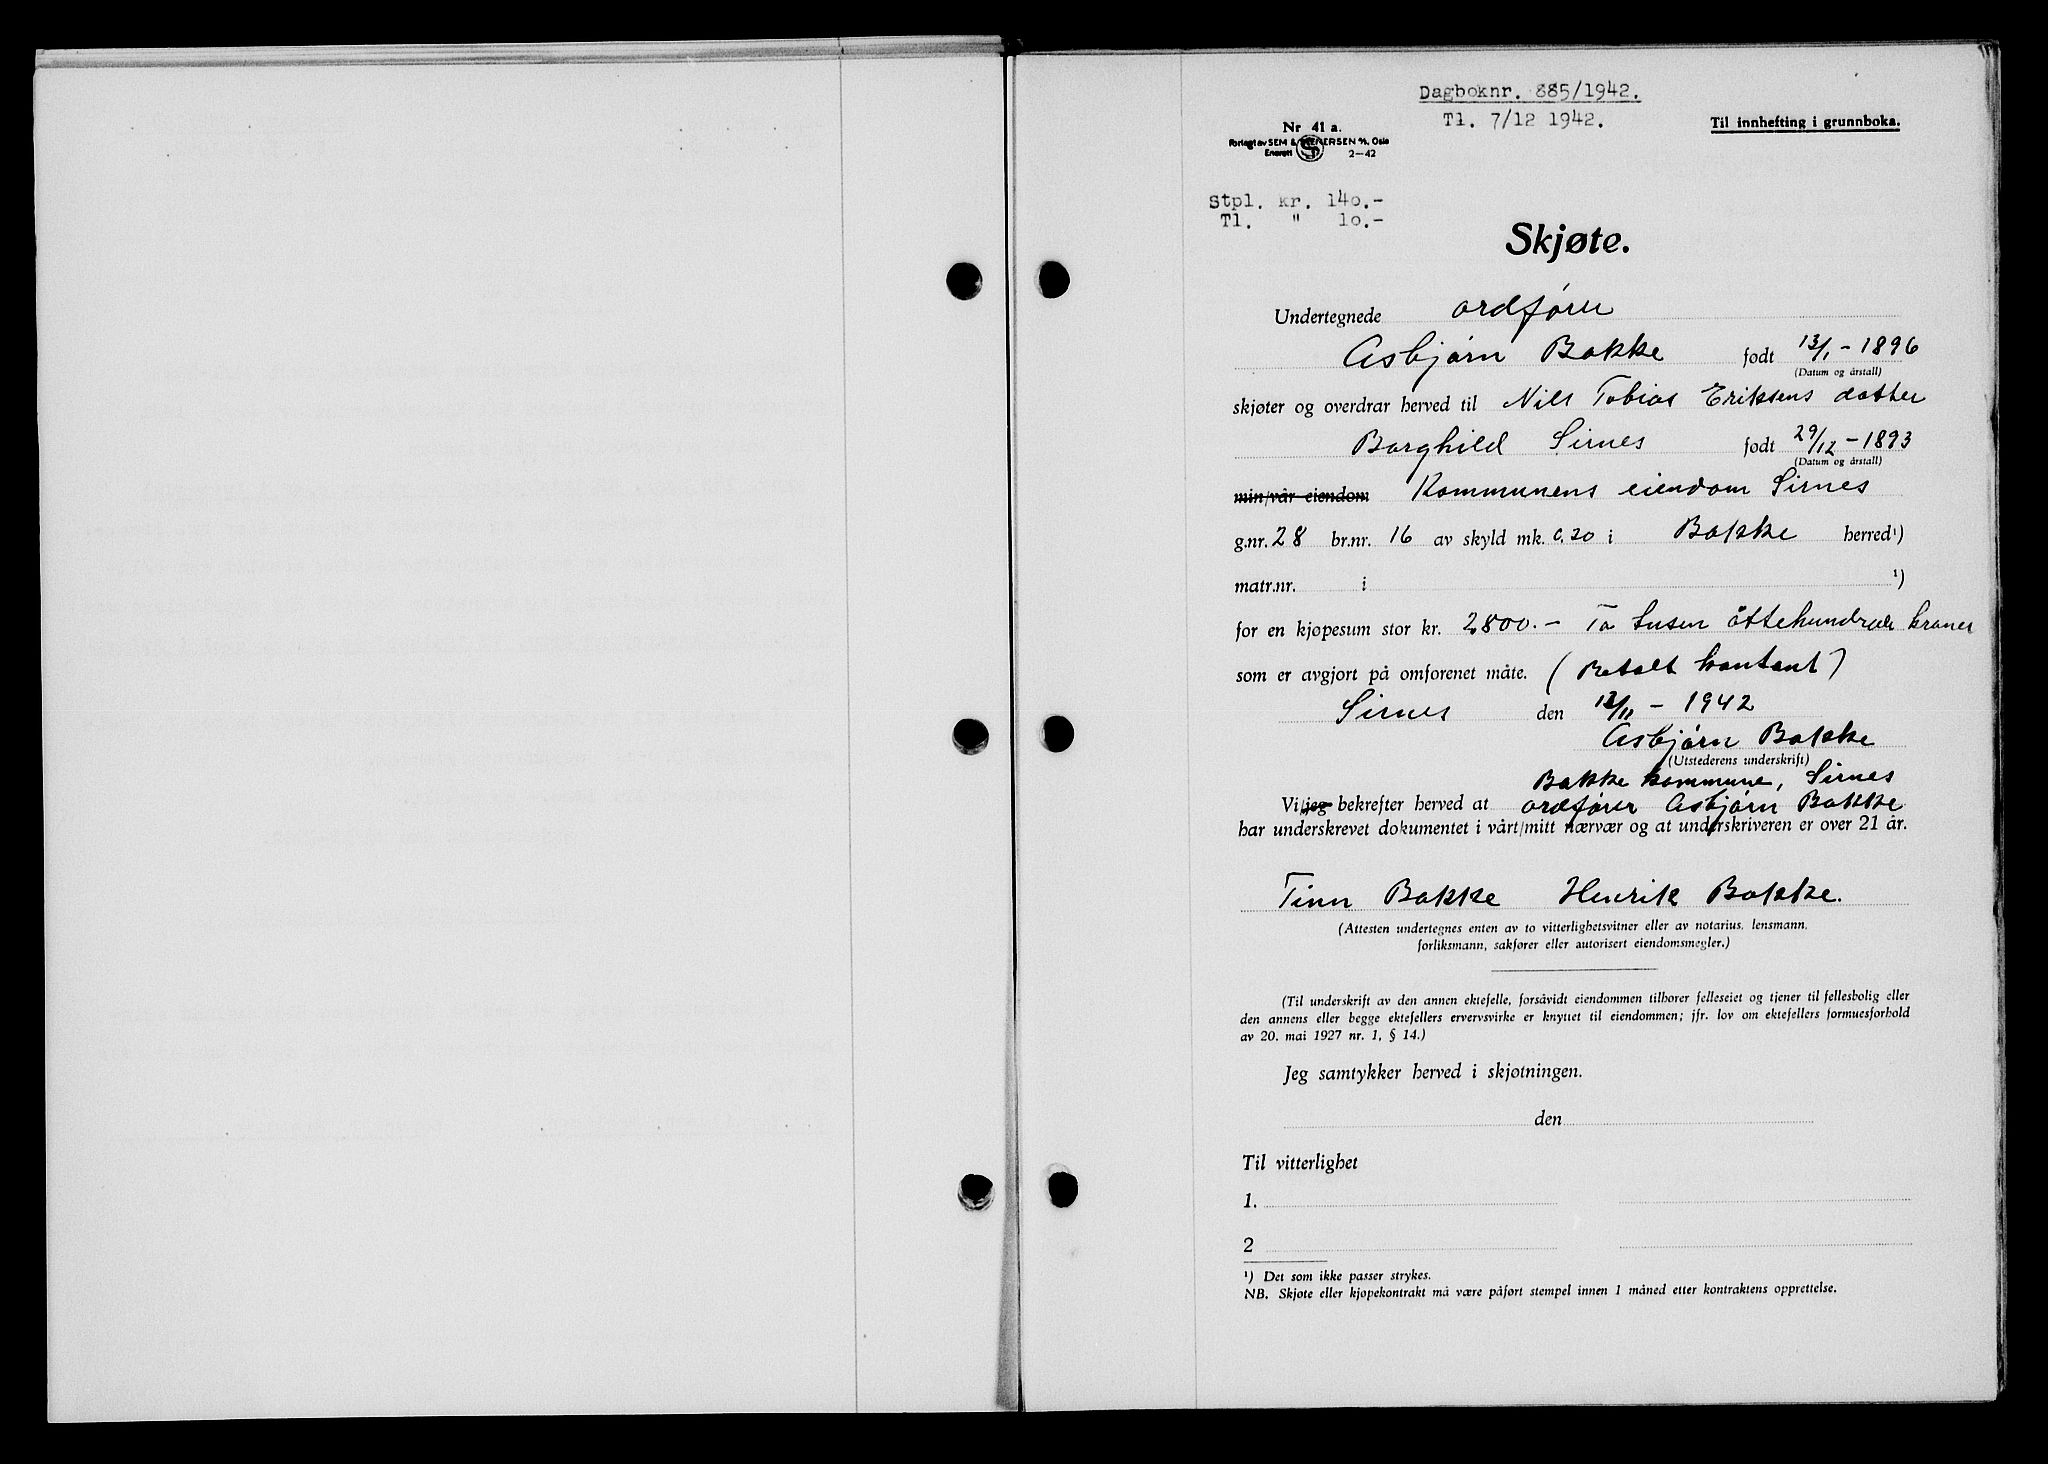 Dagboknr. 885/1942.
Tl. 7/12 1942.
Til innhefting i grunnboka.
Nr 41 a.
Forlagt av SEM & STENERSEN A/S, Oslo
Enerett 2-42
Stpl. kr. 140.-
Tl. " 10.-
Skjøte.
Undertegnede ordfører
Asbjørn Bakke født 13/1 - 1896
(Datum og årstall)
skjøter og overdrar herved til Nils Tobias Eriksens datter
Borghild Sirnes født 29/12 - 1893
(Datum og årstall)
min/vår eiendom Kommunens eiendom Sirnes
g.nr. 28 br.nr. 16 av skyld mk. 0.20 i Bakke herred¹)
matr.nr. i ¹)
for en kjøpesum stor kr. 2800.- To tusen åttehundrede kroner
som er avgjort på omforenet måte. (Betalt kontant)
Sirnes den 12/11 - 1942
Asbjørn Bakke
(Utstederens underskrift)
Bakke kommune, Sirnes
Vi/jeg bekrefter herved at ordfører Asbjørn Bakke
har underskrevet dokumentet i vårt/mitt nærvær og at underskriveren er over 21 år.
Tinn Bakke Henrik Bakke.
(Attesten undertegnes enten av to vitterlighetsvitner eller av notarius, lensmann,
forliksmann, sakfører eller autorisert eiendomsmegler.)
(Til underskrift av den annen ektefelle, forsåvidt eiendommen tilhører felleseiet og tjener til fellesbolig eller
den annens eller begge ektefellers ervervsvirke er knyttet til eiendommen; jfr. lov om ektefellers formuesforhold
av 20. mai 1927 nr. 1, § 14.)
Jeg samtykker herved i skjøtningen.
den
Til vitterlighet
1.
2
¹) Det som ikke passer strykes.
NB. Skjøte eller kjøpekontrakt må være påført stempel innen 1 måned etter kontraktens opprettelse.